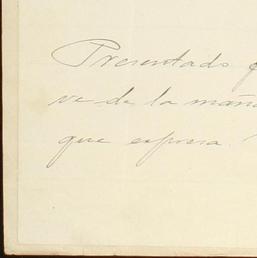 Presentado
ve de la maña
que expresa.